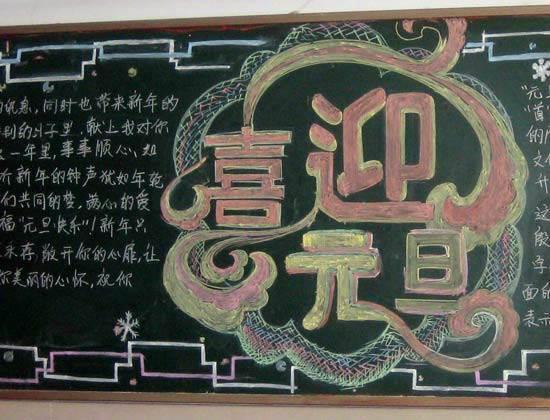 息，同时也带来新年的
别的日子里，献上我对你
一年里，事事顺心、如
新年的钟声犹如年轮
们共同的梦，满心的爱
福"元旦快乐"！新年只
存，敞开你的心扉，让
尔美丽的心怀，祝你
喜迎
元旦
"元
道
的
文
升
这
段
孕
面的
表示